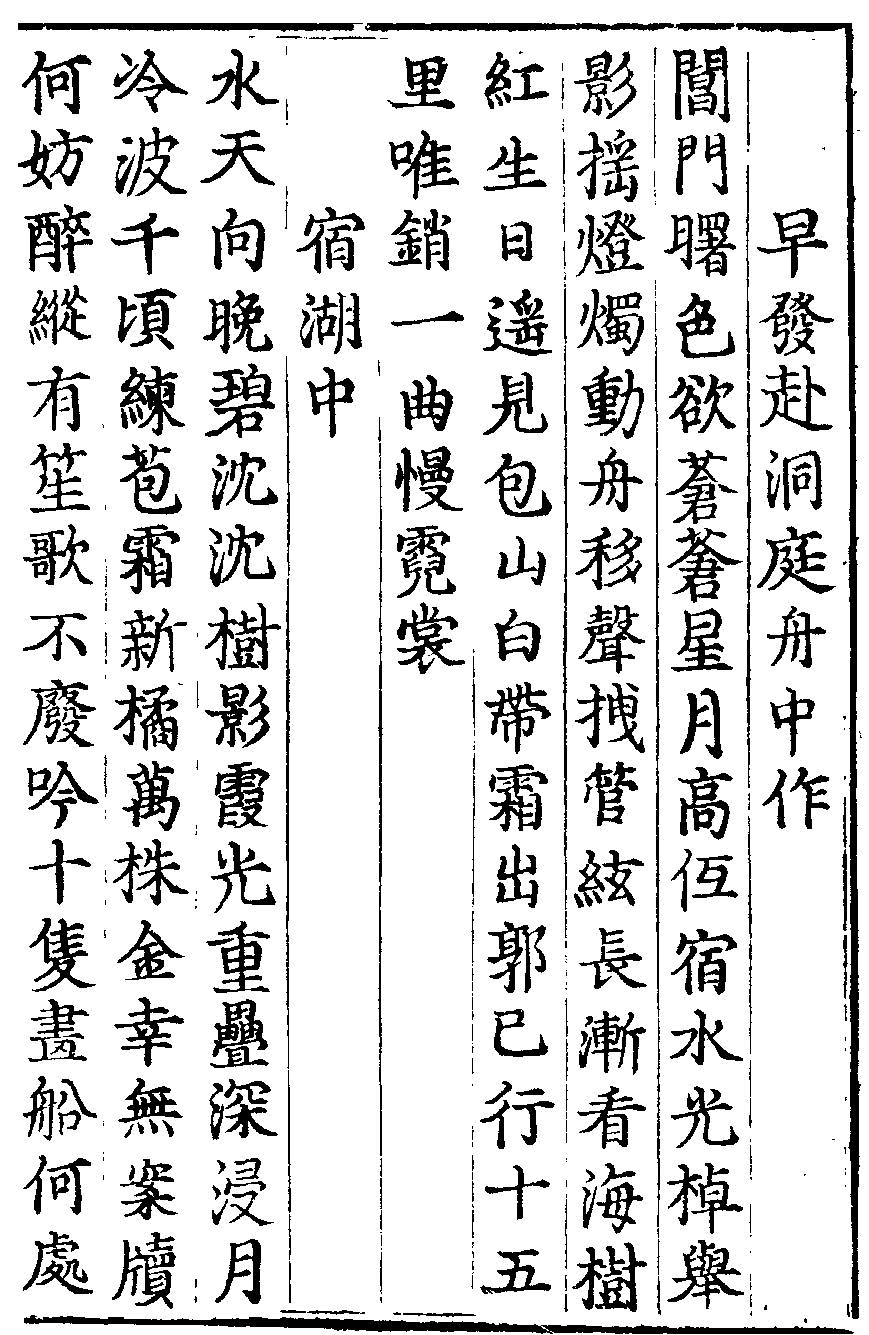 早發赴洞庭舟中作
閶門曙色欲蒼蒼星月高低宿水光棹舉
影揺燈燭動舟移聲拽管絃長漸看海樹
紅生日遥見包山白帶霜出郭已行十五
里唯銷一曲慢霓裳
宿湖中
水天向晚碧沈沈樹影霞光重疊深浸月
冷波千頃練苞霜新橘萬株金幸無案牘
何妨醉縱有笙歌不廢吟十隻畫船何處